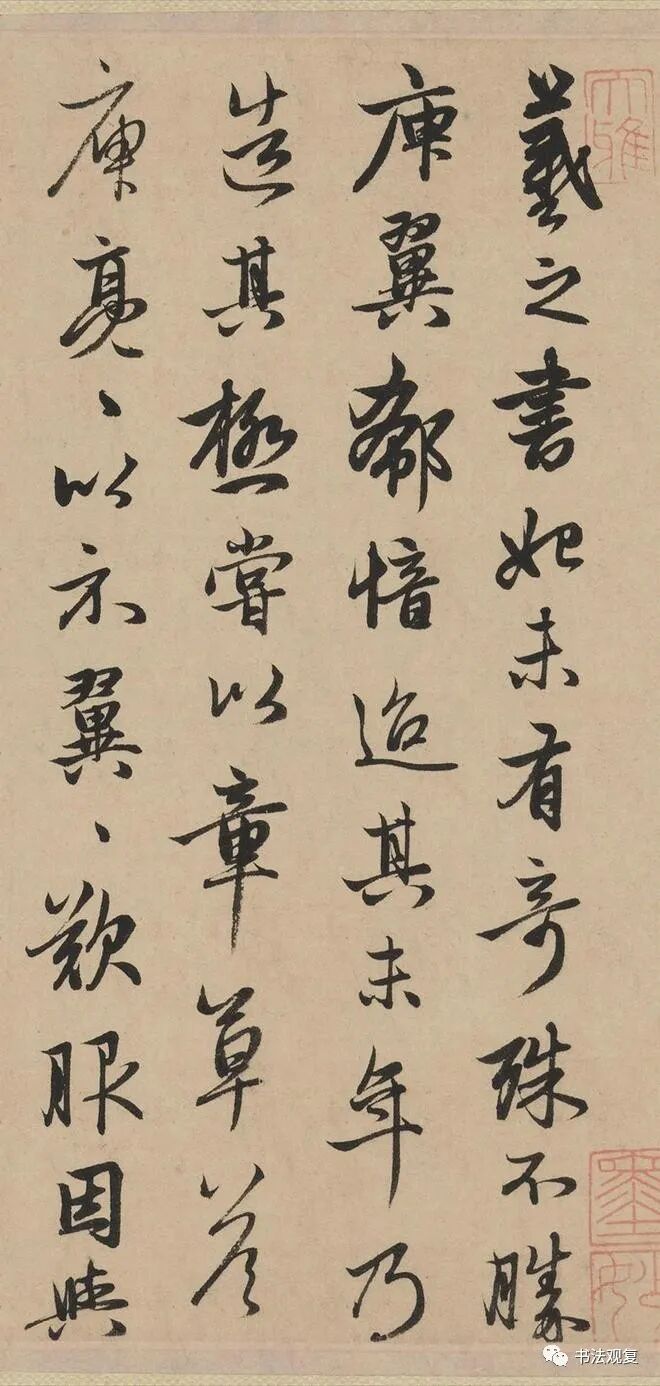 羲之書始未有奇殊不勝
庾翼郗愔迨其末年乃
造其極嘗以章草答
庾亮〻以示翼〻歎服因與
大雅
书法观复